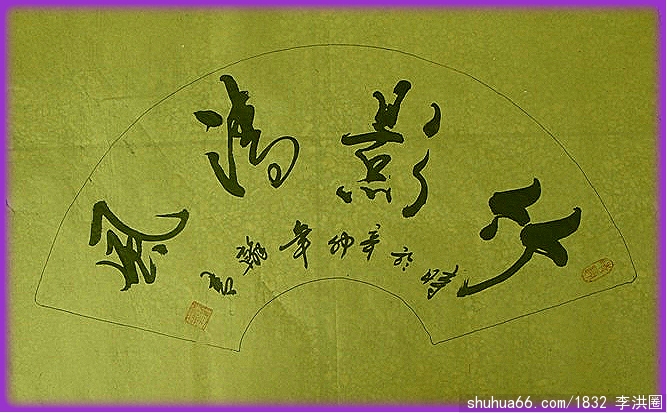 竹影清风
於辛卯年
shuhua66.com/1832 李洪圈